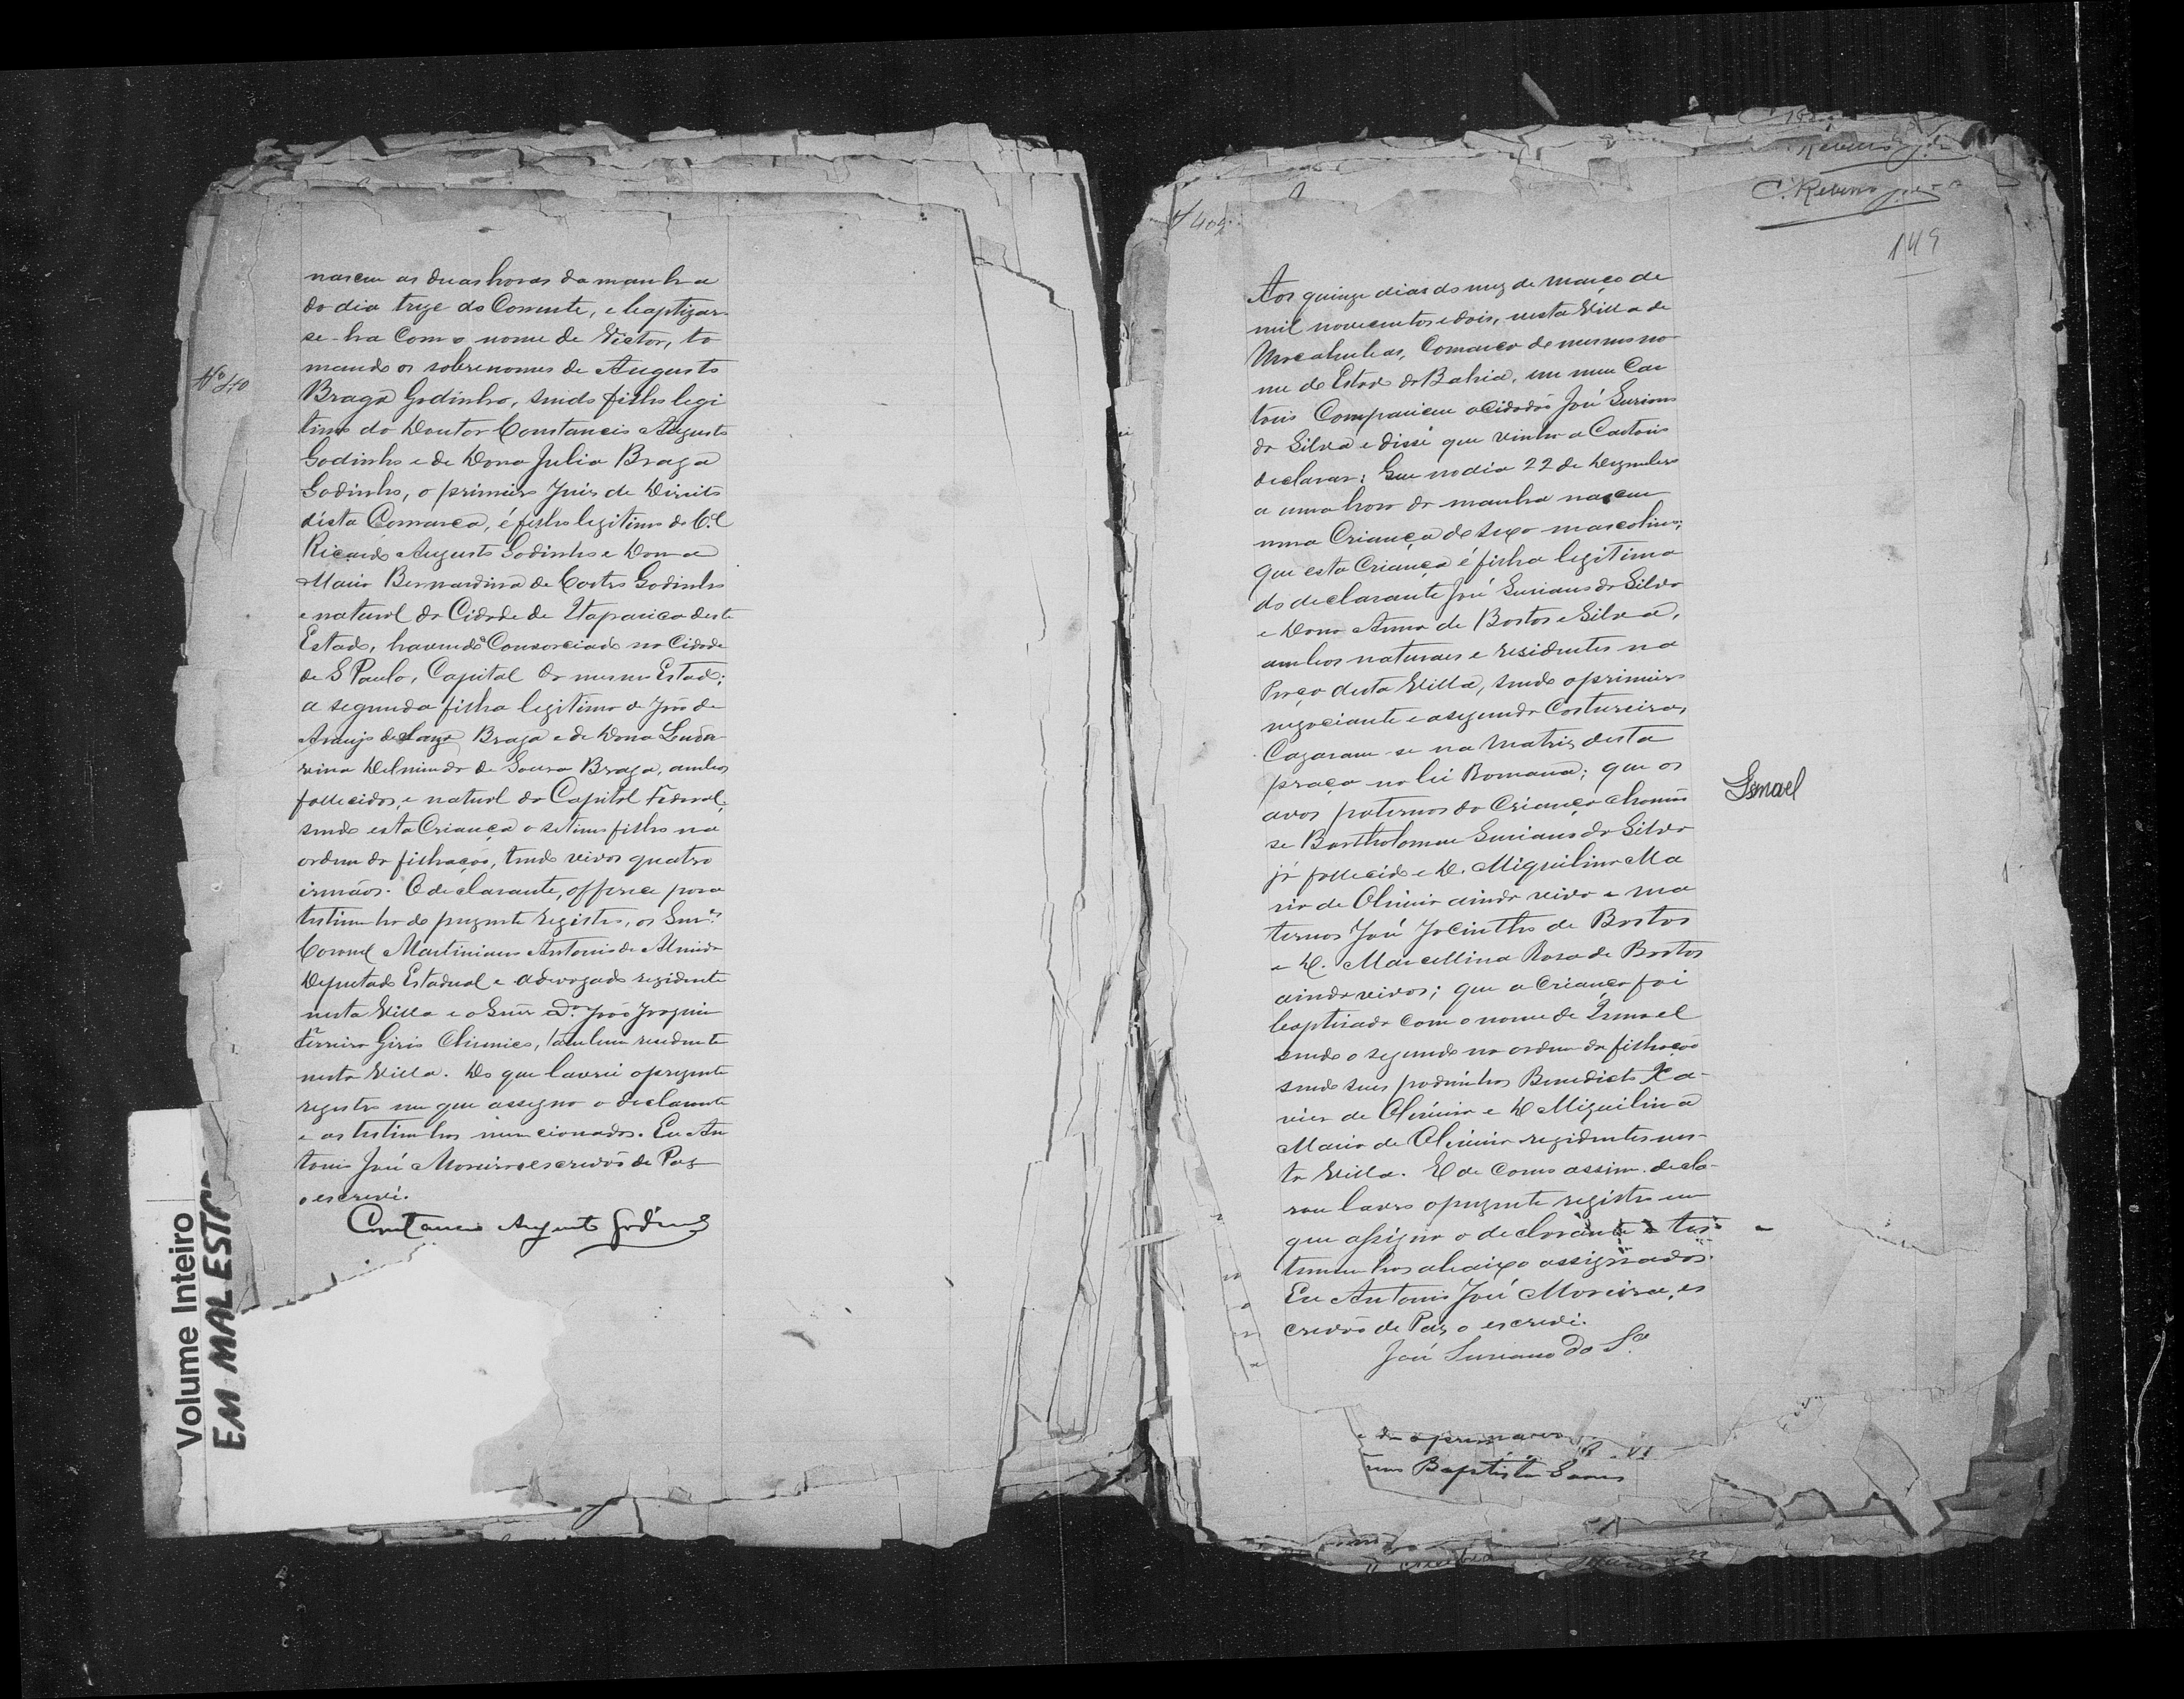 nasceu as duas horas da manhã
do dia treze do Corrente, e baptizar-
se-ha com o nome de Victor, to
mando os sobrenomes de Augusto
Nº 410
Braga Godinho, sendo filho legi
timo do Doutor Constancio Augusto
Godinho e de Dona Julia Braga
Godinho, o primeiro Juis de Direito
désta Comarca, é filho legitimo do C.el
Ricardo Augusto Godinho e Dona
Maria Bernardina de Castro Godinho
e natural da Cidade de Itaparica deste
Estado, havendo Consorciado na Cidade
de S Paulo, Capital do mesmo Estado;
a segunda filha legitima de João de
Araujo de Braga e de Dona
Delminda de Souza Braga, ambos
fallecidos, e natural da Capital Federal,
sendo esta Criança o setimo filho na
ordem da filiação, tendo vivos quatro
irmãos. O declarante, offerece para
testimunha do prezente registro, os Snr.es
Coronel Martiniano Antonio de Almeida
Deputado Estadual e advogado rezidente
nesta Villa e o Snr João Joaquim
Ferreira Giris Chimico, tambem residente
nesta Villa. Do que lavrei o prezente
registro em que assigno o declarante
e as testimunhas mencionadas. Eu An
tonio José Moreira escrivão de Paz
o escrevi.
Constancio Augusto Godinho
Volume Inteiro
EM MAL ESTA
C. Reverso
149
Aos quinze dias do mez de Março de
mil novecentos e dois, nesta Villa de
Macahubas, Comarca do mesmo no
me do Estado da Bahia, em meu Car
torio Compareceu o Cidadão José Suriano
da Silva e disse que vinha a Cartorio
declarar: Que no dia 22 de Dezembro
a uma hora da manhã nasceu
uma Criança do sexo mascolino;
que esta Criança é filha legitima
do declarante José Suriano da Silva
e Dona Anna de Bastos e Silva,
ambos naturaes e residentes na
Praça desta Villa, sendo o primeiro
negociante e a segunda Costureira,
Cazaram-se na Matriz desta
praça na lei Romana; que os
avos paternos da Criança chamão
Ismael
se Bartholomeu Suriano da Silva
já fallecido e D. Miguilina Ma
ria de Oliveira ainda viva e ma
ternos José Jacintho de Bastos
e D. Marcellina Rosa de Bastos
ainda vivos; que a Criança foi
baptisada com o nome de Ismael
sendo o segundo na ordem da filiação
sendo seus padrinhos Benedicto Xa-
vier de Oliveira e D Miguilina
Maria de Oliveira rezidentes nes-
ta Villa. E de Como assim decla-
rou lavro o prezente registro em
que assigno o declarante e tes-
temunhas abaixo assignados.
Eu Antonio José Moreira, es
crivão de Paz o escrevi.
José Suriano da S.a
Baptista